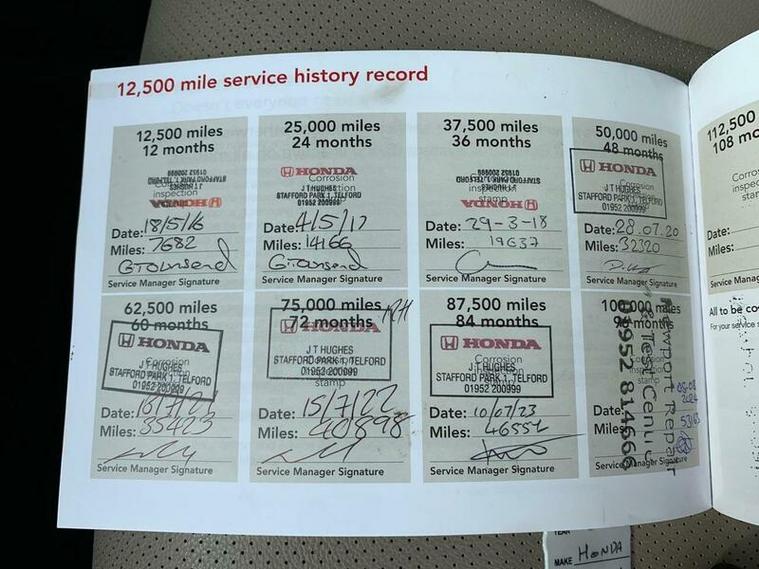 12,500 mile service history record
12,500 miles
12 months
01952 200999
STAFFORD PARK 1, TELFORD
JT HUGHES
inspection
HONDA
Date: 18/5/16
Miles: 7682
GTownsend
Service Manager Signature
25,000 miles
24 months
HONDA
Corrosion
JT HUGHES
STAFFORD PARK 1, TELFORD
01952 200999
Date: 4/5/17
Miles: 14166
GTownsend
Service Manager Signature
37,500 miles
36 months
01952 200999
STAFFORD PARK 1, TELFORD
JT HUGHES
stamp
HONDA
Date: 29-3-18
Miles: 19637
Service Manager Signature
50,000 miles
48 months
HONDA
Corrosion
J T HUGHES
STAFFORD PARK 1, TELFORD
01952 200999
Date: 28.07.20
Miles: 32320
Service Manager Signature
112,500
108 mo
Corro
inspe
Date:
Miles:
62,500 miles
60 months
HONDA
Corrosion
J T HUGHES
STAFFORD PARK 1, TELFORD
01952 200999
Date:
Miles: 35423
Service Manager Signature
75,000 miles
72 months
HONDA
J T HUGHES
STAFFORD PARK 1, TELFORD
01952 200999
stamp
Date: 15/7/22
Miles: 40898
Service Manager Signature
87,500 miles
84 months
HONDA
Corrosion
J T HUGHES
STAFFORD PARK 1, TELFORD
01952 200999
stamp
Date: 10/07/23
Miles: 46554
Service Manager Signature
100,000 miles
96 months
Corrosion
stamp
Newport Repair
& Test Centre
01952 814666
Date:
Miles:
Service Manager Signature
All to be co
For your service s
MAKE HONDA